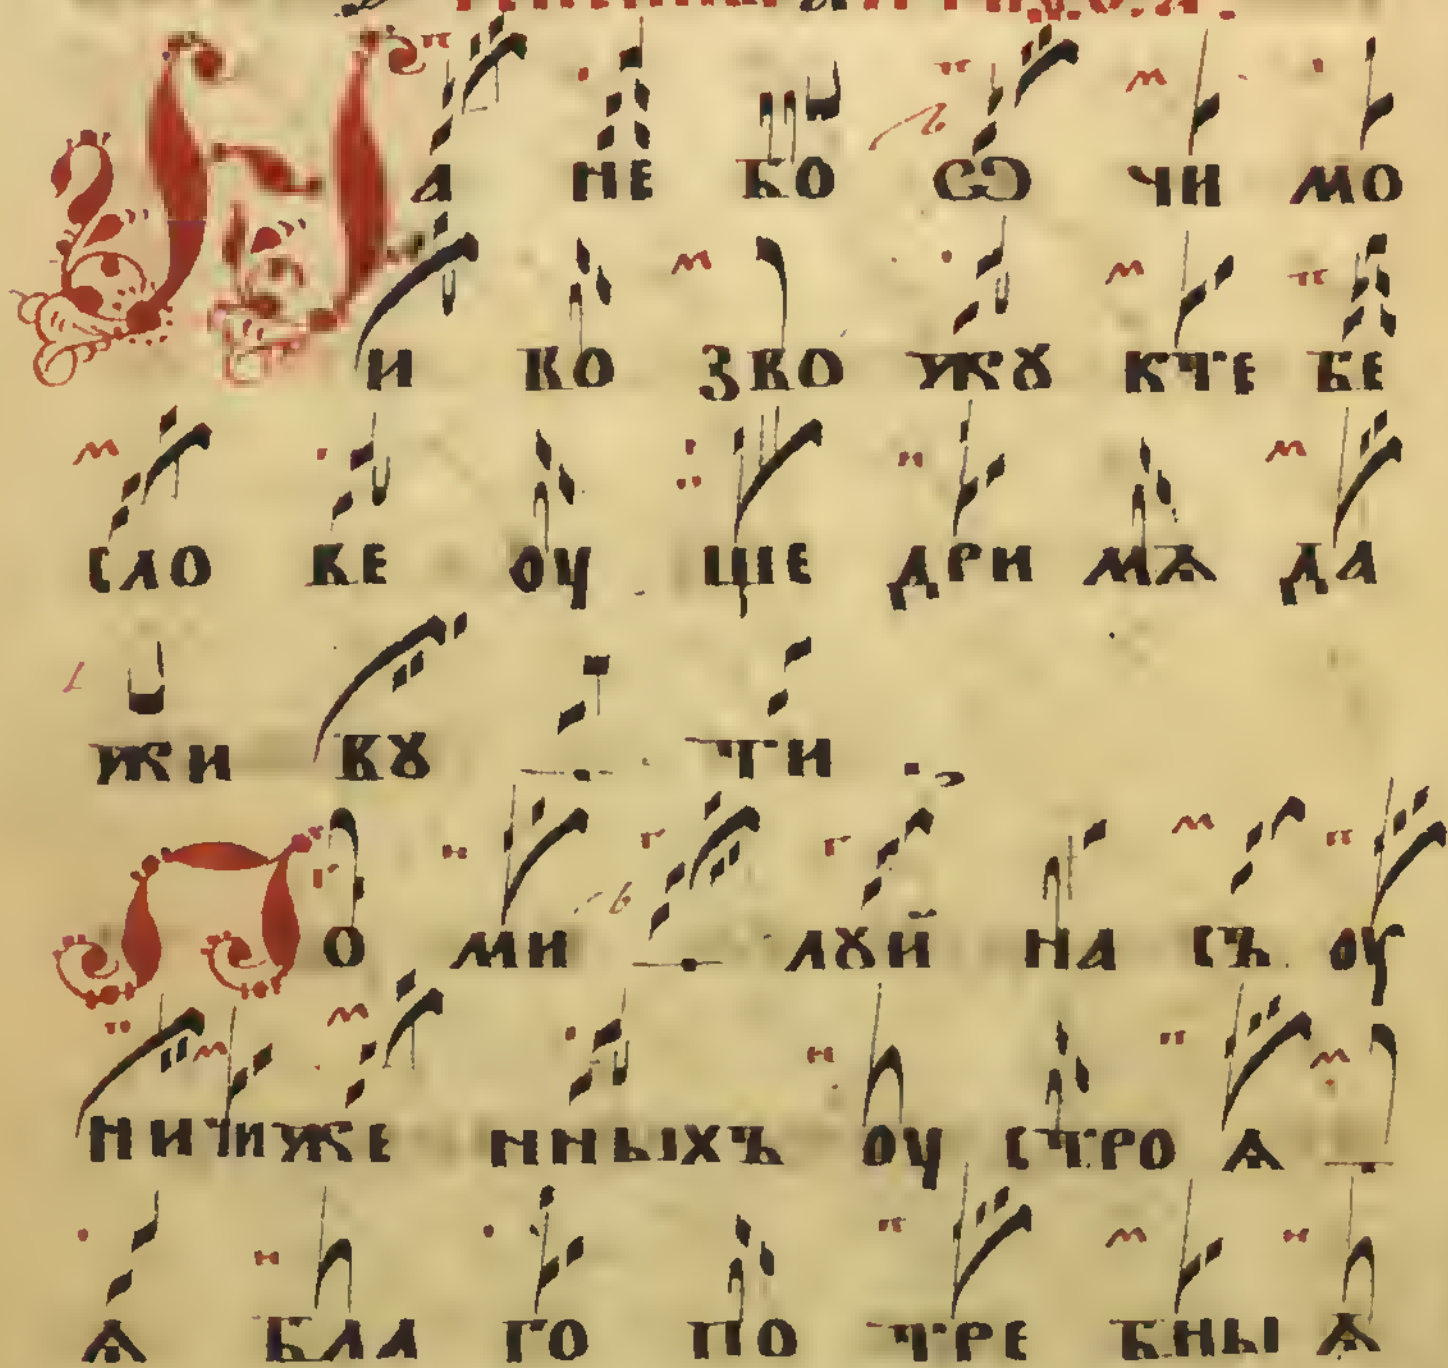 На не бо ѡ чи мо
и во зво жꙋ к те бе
сло ве оу ще дри мѧ да
жи вꙋ ти
По ми лꙋй на съ оу
ни чи же нныхъ оу стро ѧ
ѧ бла го по тре бны ѧ